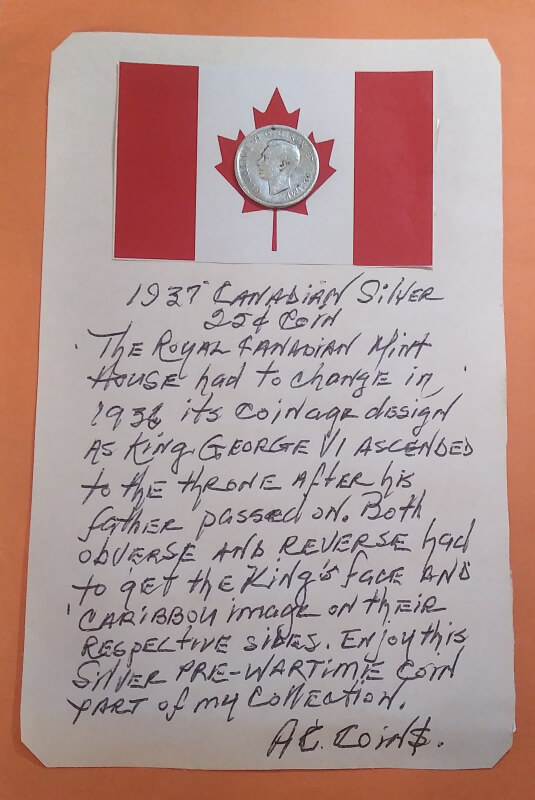 1937 CANADIAN SilVER
25¢ COiN
THE ROYAL CANADIAN MiNT
HOUSE had to change in
1936 its COiNAGE design
AS KiNG GEORGE VI ASCENDED
to the throne AFTER his
father passed on. Both
OBVERSE AND REVERSE had
to get the King's face AND
CARIBBOU image on their
RESPECTIVE SIDES. Enjoy this
SilVER PRE-WARTIME COiN
PART of my COllECTION.
A.C. COiN$.